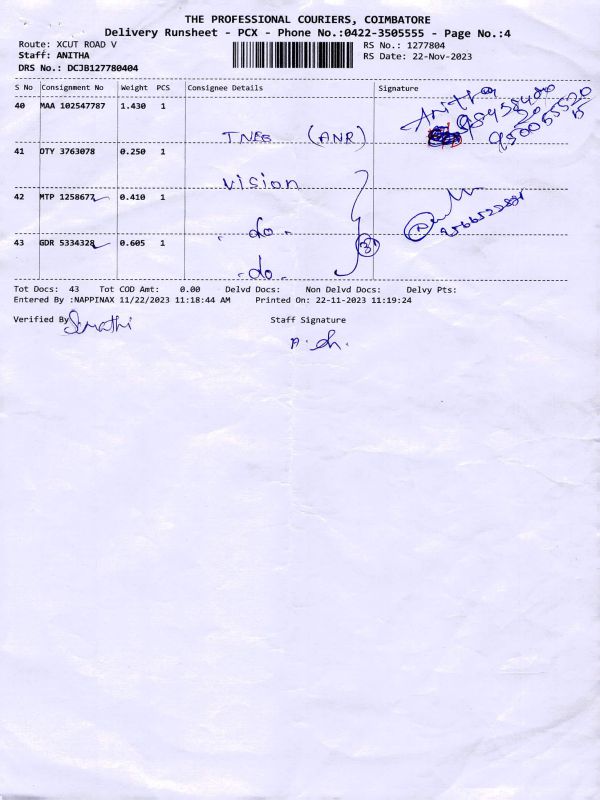 THE PROFESSIONAL COURIERS, COIMBATORE
Delivery Runsheet - PCX - Phone No.:0422-3505555 - Page No.:4
Route: XCUT ROAD V
RS No.: 1277804
Staff: ANITHA
RS Date: 22-Nov-2023
DRS No.: DCJB127780404
S No Consignment No Weight PCS Consignee Details Signature
40 MAA 102547787 1.430 1
TNEB (ANR)
Anitha
41 DTY 3763078 0.250 1
Vision
42 MTP 1258677 0.410 1
- do -
43 GDR 5334328 0.605 1
3
- do -
Tot Docs: 43 Tot COD Amt: 0.00 Delvd Docs: Non Delvd Docs: Delvy Pts:
Entered By :NAPPINAX 11/22/2023 11:18:44 AM Printed On: 22-11-2023 11:19:24
Verified By Sumathi
Staff Signature